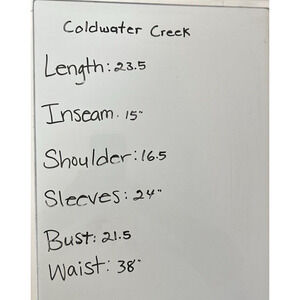 Coldwater Creek
Length: 23.5
Inseam. 15"
Shoulder: 16.5
Sleeves: 24"
Bust: 21.5
Waist: 38"